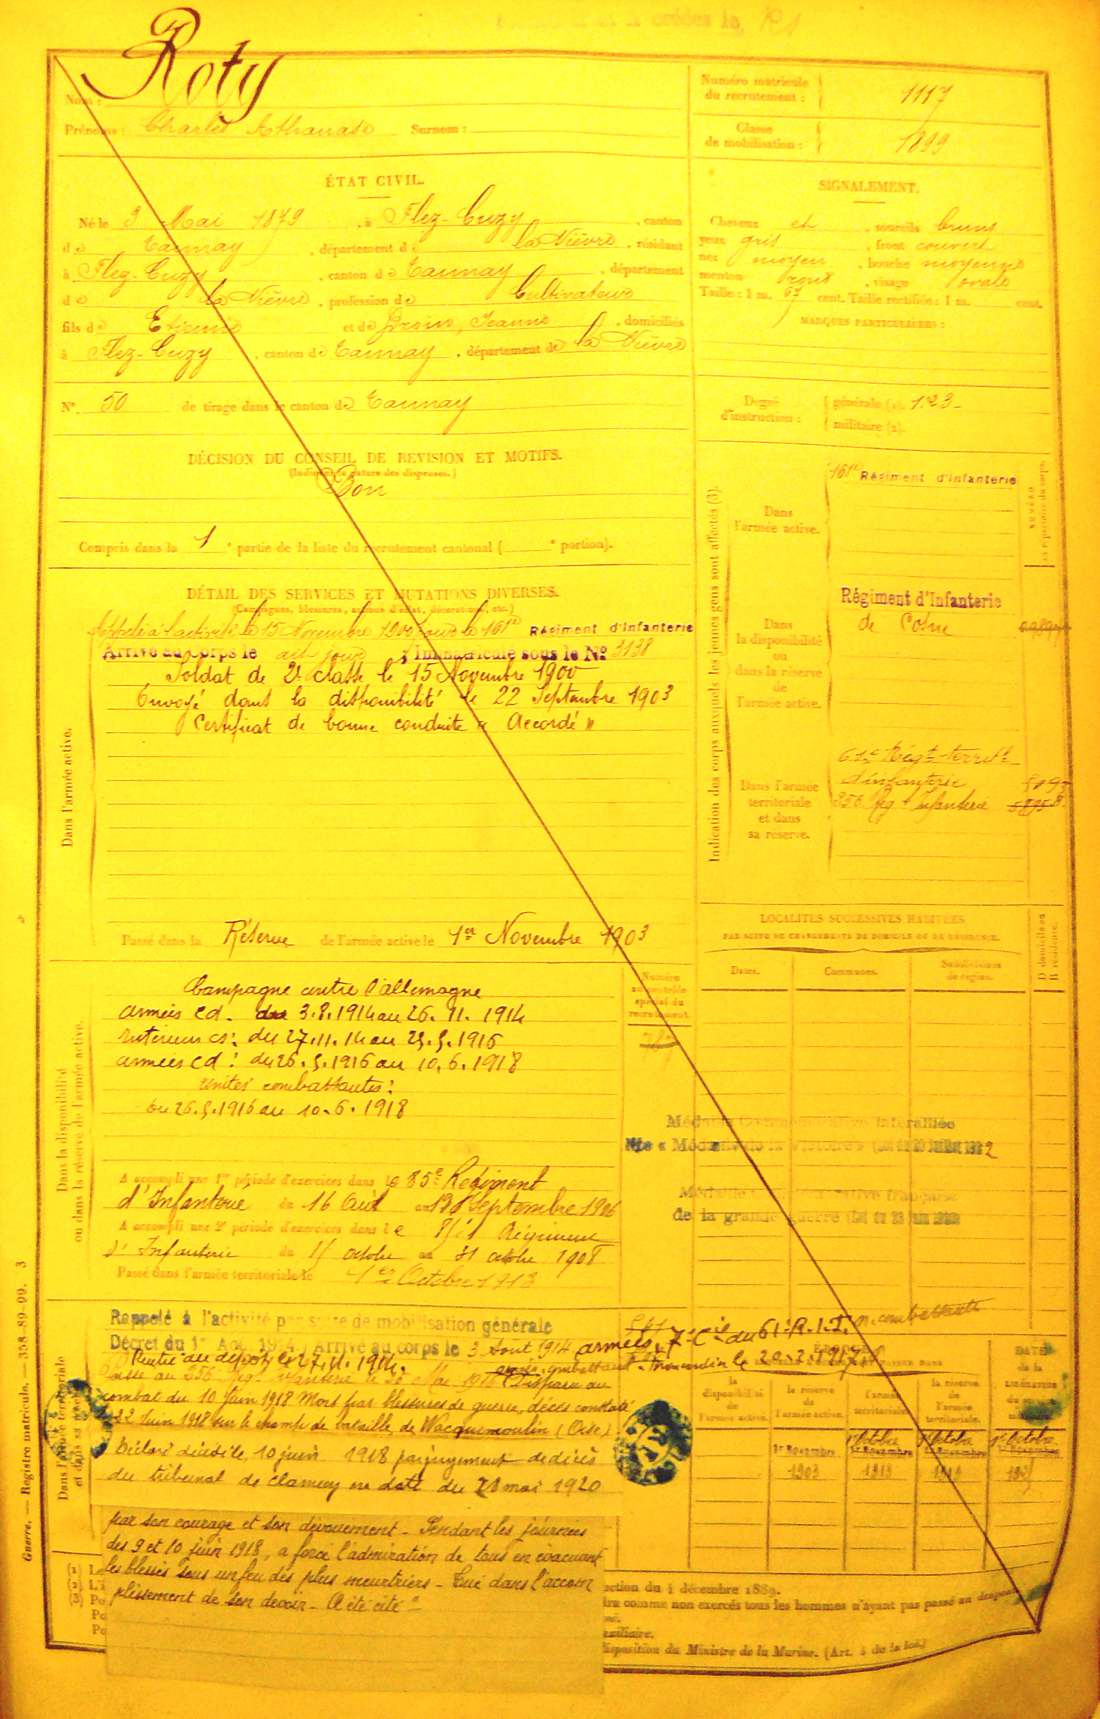 Roty
Nom :
Prénoms : Charles Athanase Surnom :
Numéro matricule du recrutement : 1117
Classe de mobilisation : 1899
ÉTAT CIVIL.
Né le 3 Mai 1879, à Flez-Cuzy, canton
de Tannay, département de la Nièvre, résidant
à Flez-Cuzy, canton de Tannay, département
de la Nièvre, profession de Cultivateur
fils de Etienne et de Jeanne, domiciliés
à Flez-Cuzy, canton de Tannay, département de la Nièvre
N° 50 de tirage dans le canton de Tannay
SIGNALEMENT.
Cheveux et sourcils bruns
yeux gris, front couvert
nez moyen, bouche moyenne
menton rond, visage ovale
Taille : 1 m. 67 cent. Taille rectifiée : 1 m. cent.
MARQUES PARTICULIÈRES :
Degré d'instruction : générale (1). 1.2.3
militaire (2).
DÉCISION DU CONSEIL DE REVISION ET MOTIFS.
(Indiquer la nature des dispenses.)
Bon
Compris dans la 1e partie de la liste du recrutement cantonal ( e portion).
DÉTAIL DES SERVICES ET MUTATIONS DIVERSES.
(Campagnes, blessures, actions d'éclat, décorations, etc.)
Appelé à l'activité le 15 Novembre 1900 au 161e Régiment d'Infanterie
Arrivé au corps le dit jour ; Immatriculé sous le No 3138
Soldat de 2e classe le 15 Novembre 1900
Envoyé dans la disponibilité le 22 Septembre 1903
Certificat de bonne conduite « Accordé »
Dans l'armée active.
Passé dans la Réserve de l'armée active le 1er Novembre 1903
Indication des corps auxquels les jeunes gens sont affectés (3).
Dans l'armée active.
161e Régiment d'Infanterie
Dans la disponibilité ou dans la réserve de l'armée active.
Régiment d'Infanterie
de Cosne
Dans l'armée territoriale et dans sa réserve.
61e Régt territl
d'infanterie
256 Reg t Infanterie
LOCALITÉS SUCCESSIVES HABITÉES
PAR SUITE DE CHANGEMENTS DE DOMICILE OU DE RÉSIDENCE.
Dates. Communes. Subdivisions de région. D domicile ou R résidence.
Numéro au contrôle spécial du recrutement
Dans la disponibilité ou dans la réserve de l'armée active.
Campagne contre l'allemagne
armées cd. du 3.8.1914 au 26.11.1914
intérieur cs: du 27.11.14 au 25.5.1916
armées cd: du 26.5.1916 au 10.6.1918
unités combattantes:
du 26.5.1916 au 10.6.1918
Médaille Commémorative Interalliée
dite « Médaille de la Victoire » (Loi du 20 Juillet 1922
Médaille Commémorative française
de la grande guerre (Loi du 23 Juin 1920)
A accompli une 1re période d'exercices dans le 85e Régiment
d'Infanterie du 16 Août au Septembre 1906
A accompli une 2e période d'exercices dans le 85e Régiment
d'Infanterie du 15 octobre au 31 octobre 1908
Passé dans l'armée territoriale le 1er Octobre 1913
Rappelé à l'activité par suite de mobilisation générale
Décret du 1er Août 1914. Arrivé au corps le 3 Août 1914
armées 7e Cie du 61e R.I.T. n. combattante
Rentré au dépôt le 27.11.1914.
Disparu au
combat du 10 Juin 1918 Mort par blessures de guerre, décès constaté
22 Juin 1918 sur le champ de bataille de Wacquemoulin (Oise)
Déclaré décédé le 10 juin 1918 par jugement
du tribunal de Clamecy en date du mai 1920
par son courage et son dévouement - Pendant les journées
des 9 et 10 juin 1918, a forcé l'admiration de tous en évacuant
les blessés sous un feu des plus meurtriers - Tué dans l'accom
plissement de son devoir - A été cité"
la disponibilité de l'armée active. la réserve de l'armée active. l'armée territoriale. la réserve de l'armée territoriale.
1er Novembre 1903
ection du 4 décembre 1889.
dre comme non exercés tous les hommes n'ayant pas passé au drapeau
auxiliaire.
disposition du Ministre de la Marine. (Art. 4 de la loi.)
Guerre. — Registre matricule. — 358-89-99. 3